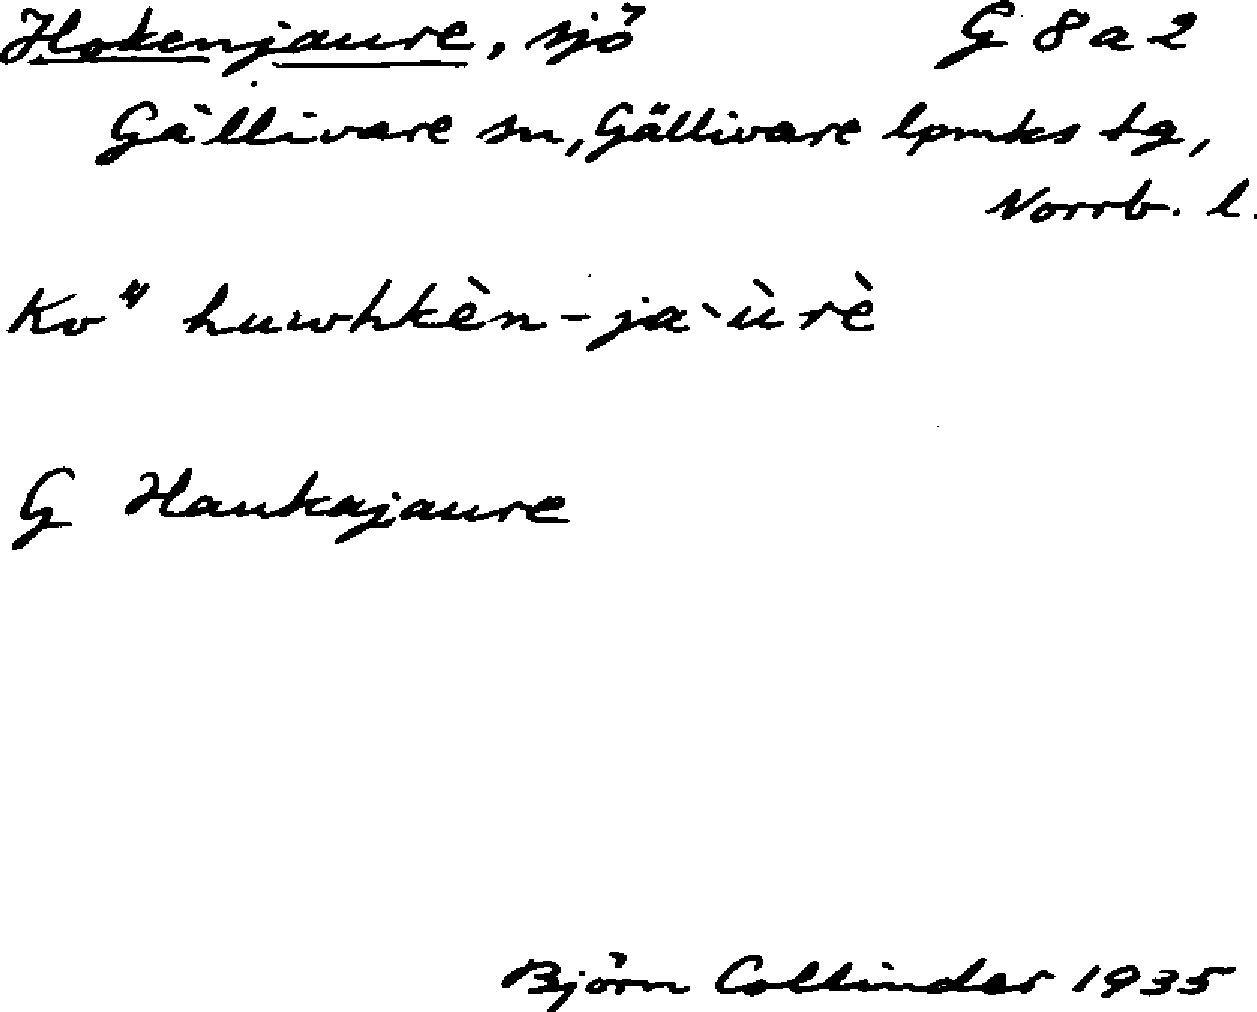 Hokenjaure, sjö G 8 a 2
Gällivare sn, Gällivare lpmks tg,
Norrb. l.
Kv" huwhkèn-ja`ùrè
G Haukajaure
Björn Collinder 1935